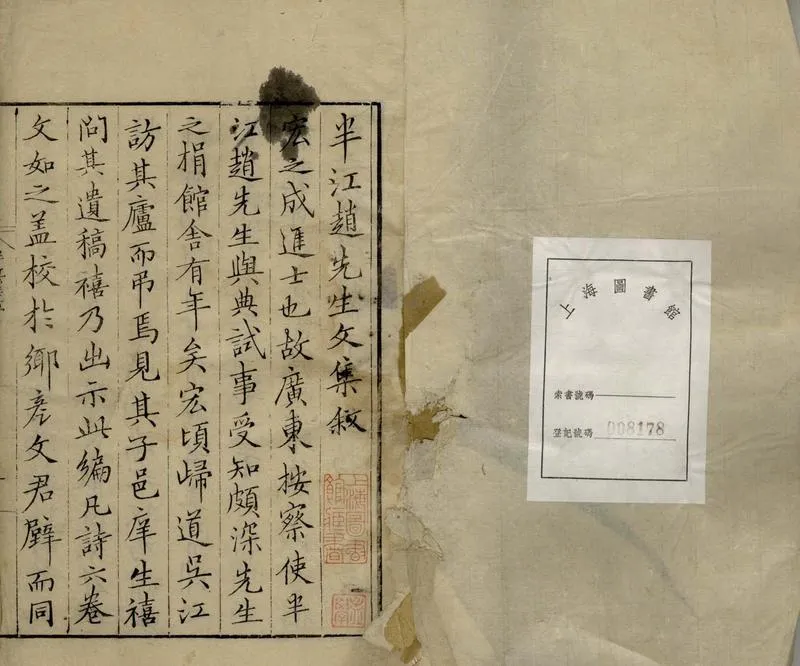 半江趙先生文集敘
宏之成進士也故廣東按察使半
江趙先生與典試事受知頗深先生
之捐館舍有年矣宏頃歸道吳江
訪其廬而弔焉見其子邑庠生禧
問其遺稿禧乃出示此編凡詩六卷
文如之盖校於鄉彥文君壁而同
上海圖書館藏書
上海圖書館
索書號碼
登記號碼 008178